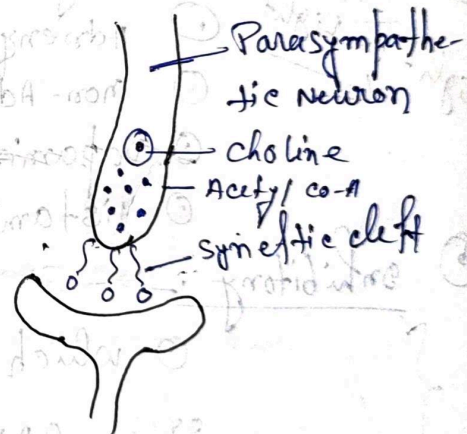 Parasympathe-
tic Neuron
Choline
Acetyl co-A
Syneftic cleft